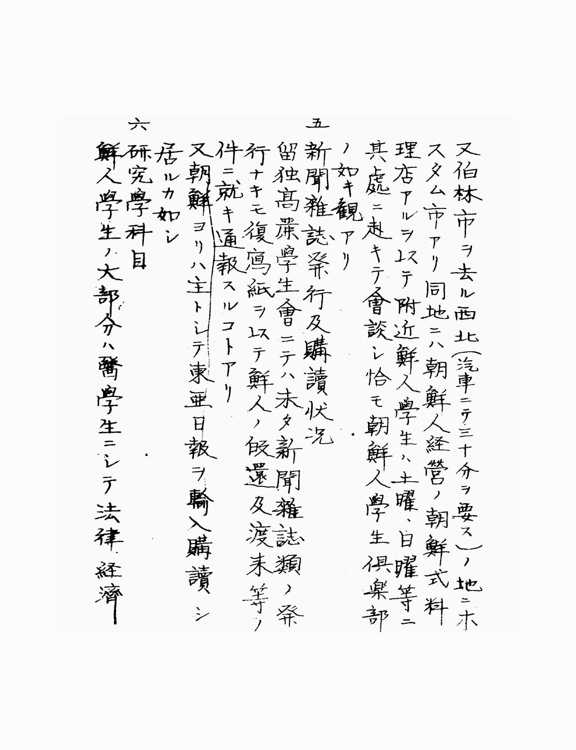 又伯林市ヲ去ル西北(汽車ニテ三十分ヲ要ス)ノ地ニホ
スタム市アリ同地ニハ朝鮮人経營ノ朝鮮式料
理店アルヲ以テ附近鮮人學生ハ土曜、日曜等ニ
其處ニ赴キテ會談シ恰モ朝鮮人學生倶楽部
ノ如キ観アリ
五
新聞雑誌発行及購讀状况
留独高麗學生會ニテハ未タ新聞雑誌類ノ発
行ナキモ復寫紙ヲ以テ鮮人ノ皈還及渡来等ノ
件ニ就キ通報スルコトアリ
又朝鮮ヨリハ主トシテ東亜日報ヲ輸入購讀シ
居ルカ如シ
六
研究學科目
鮮人學生ノ大部分ハ醫學生ニシテ法律経濟